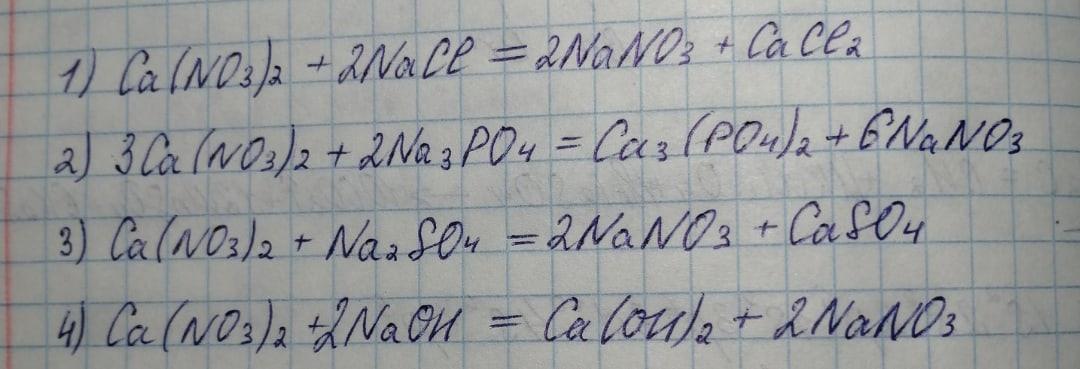 1) Ca(NO3)2 + 2NaCl = 2NaNO3 + CaCl2
2) 3Ca(NO3)2 + 2Na3PO4 = Ca3(PO4)2 + 6NaNO3
3) Ca(NO3)2 + Na2SO4 = 2NaNO3 + CaSO4
4) Ca(NO3)2 + 2NaOH = Ca(OH)2 + 2NaNO3